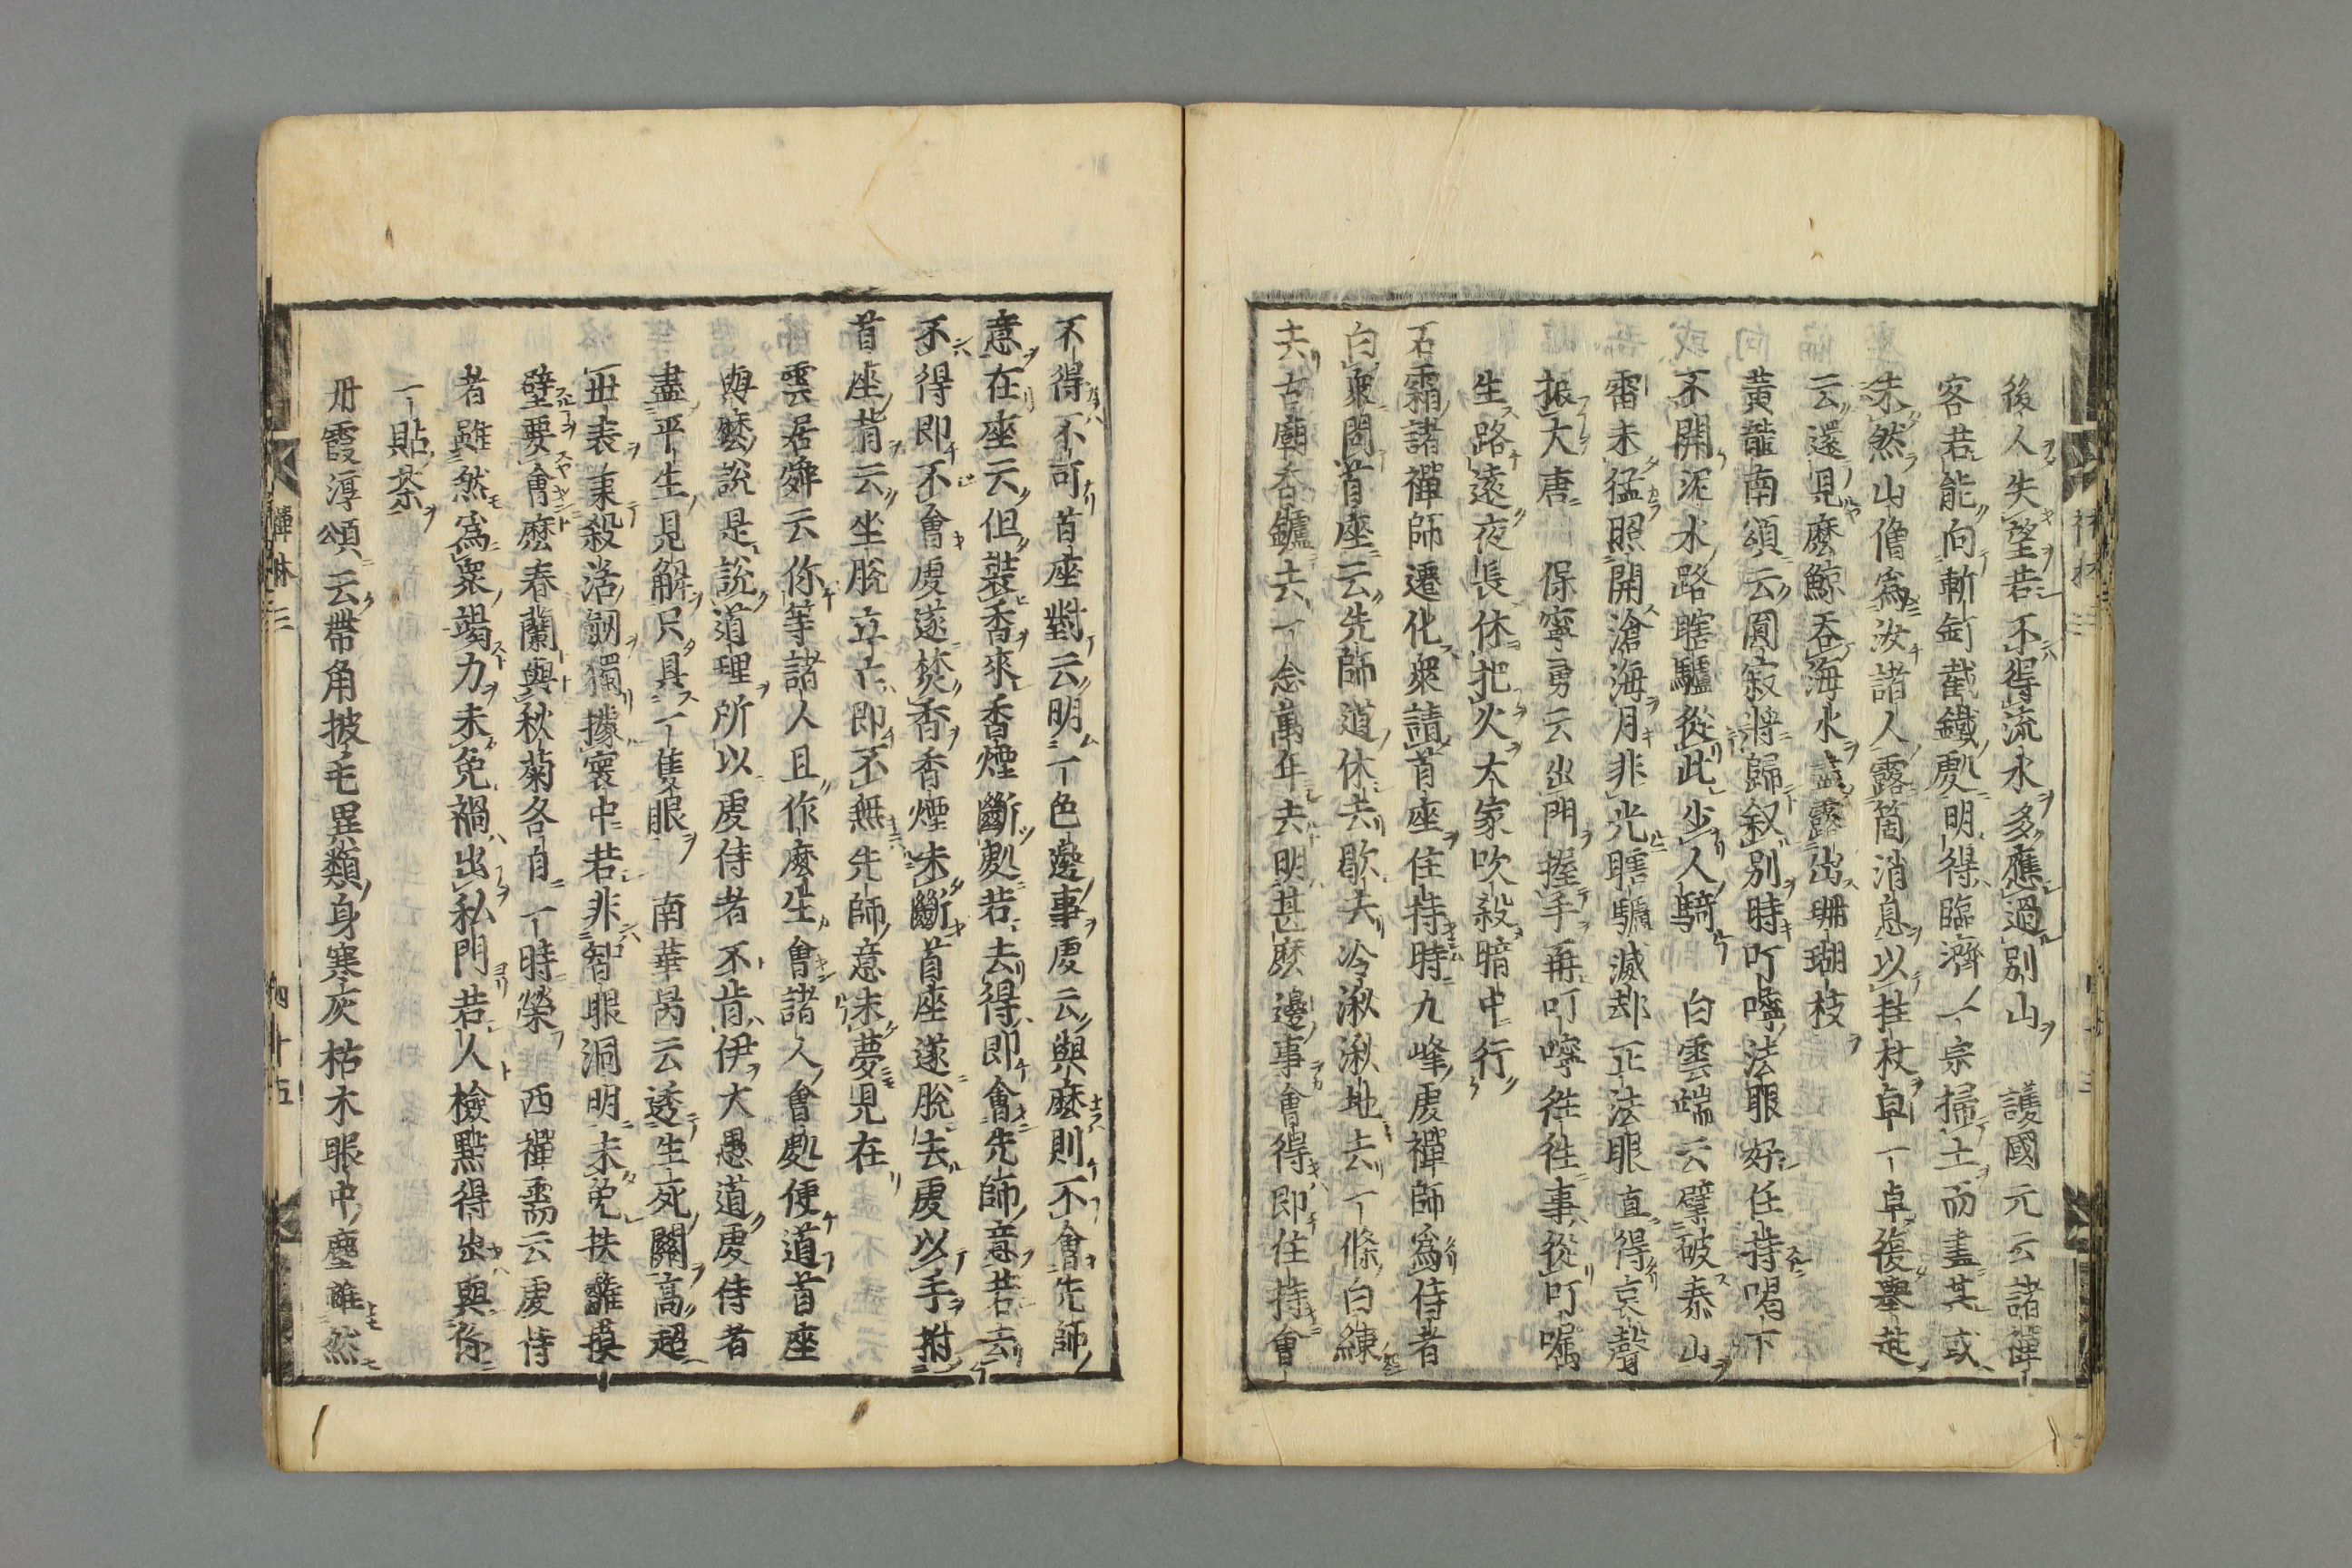 後人失望若不得流水多應過別山　護國元云諸禪
客若能向斬釘截鐵處明得臨濟一宗掃土而盡其或
未然山僧爲汝諸人露箇消息以拄杖卓一卓復擧起
云還見麽鯨吞海水盡露出珊瑚枝
黃龍南頌云圓寂將歸叙別時叮嚀法眼好任持喝下
不開泥水路瞎驢從此少人騎　白雲端云擘破泰山
雷未猛照開滄海月非光瞎驢滅却正法眼直得哀聲
振大唐　保寧勇云出門握手再叮嚀往往事從叮囑
生路遠夜長休把火大家吹殺暗中行
石霜諸禪師遷化衆請首座住持時九峰虔禪師爲侍者
白衆問首座云先師道休去歇去冷湫湫地去一條白練
去古廟香鑪去一念萬年去明甚麽邊事會得即住持會
不得不可首座對云明一色邊事虔云與麽則不會先師
意在座云但裝香來香煙斷處若去得即會先師意若去
不得即不會虔遂焚香香煙未斷首座遂脫去虔以手拊
首座背云坐脫立亡即不無先師意未夢見在
雲居舜云你等諸人且作麽生會諸人會處便道首座
與麽說是說道理所以虔侍者不肯伊大愚道虔侍者
盡平生見解只具一隻眼　南華昺云透生死關高超
丗表秉殺活劒獨據寰中若非智眼洞明未免扶籬摸
壁要會麽春蘭與秋菊各自一時榮　西禪需云虔侍
者雖然爲衆竭力未免禍出私門若人檢點得出與你
一貼茶
丹霞淳頌云帶角披毛異類身寒灰枯木眼中塵雖然
禪林三
四十五